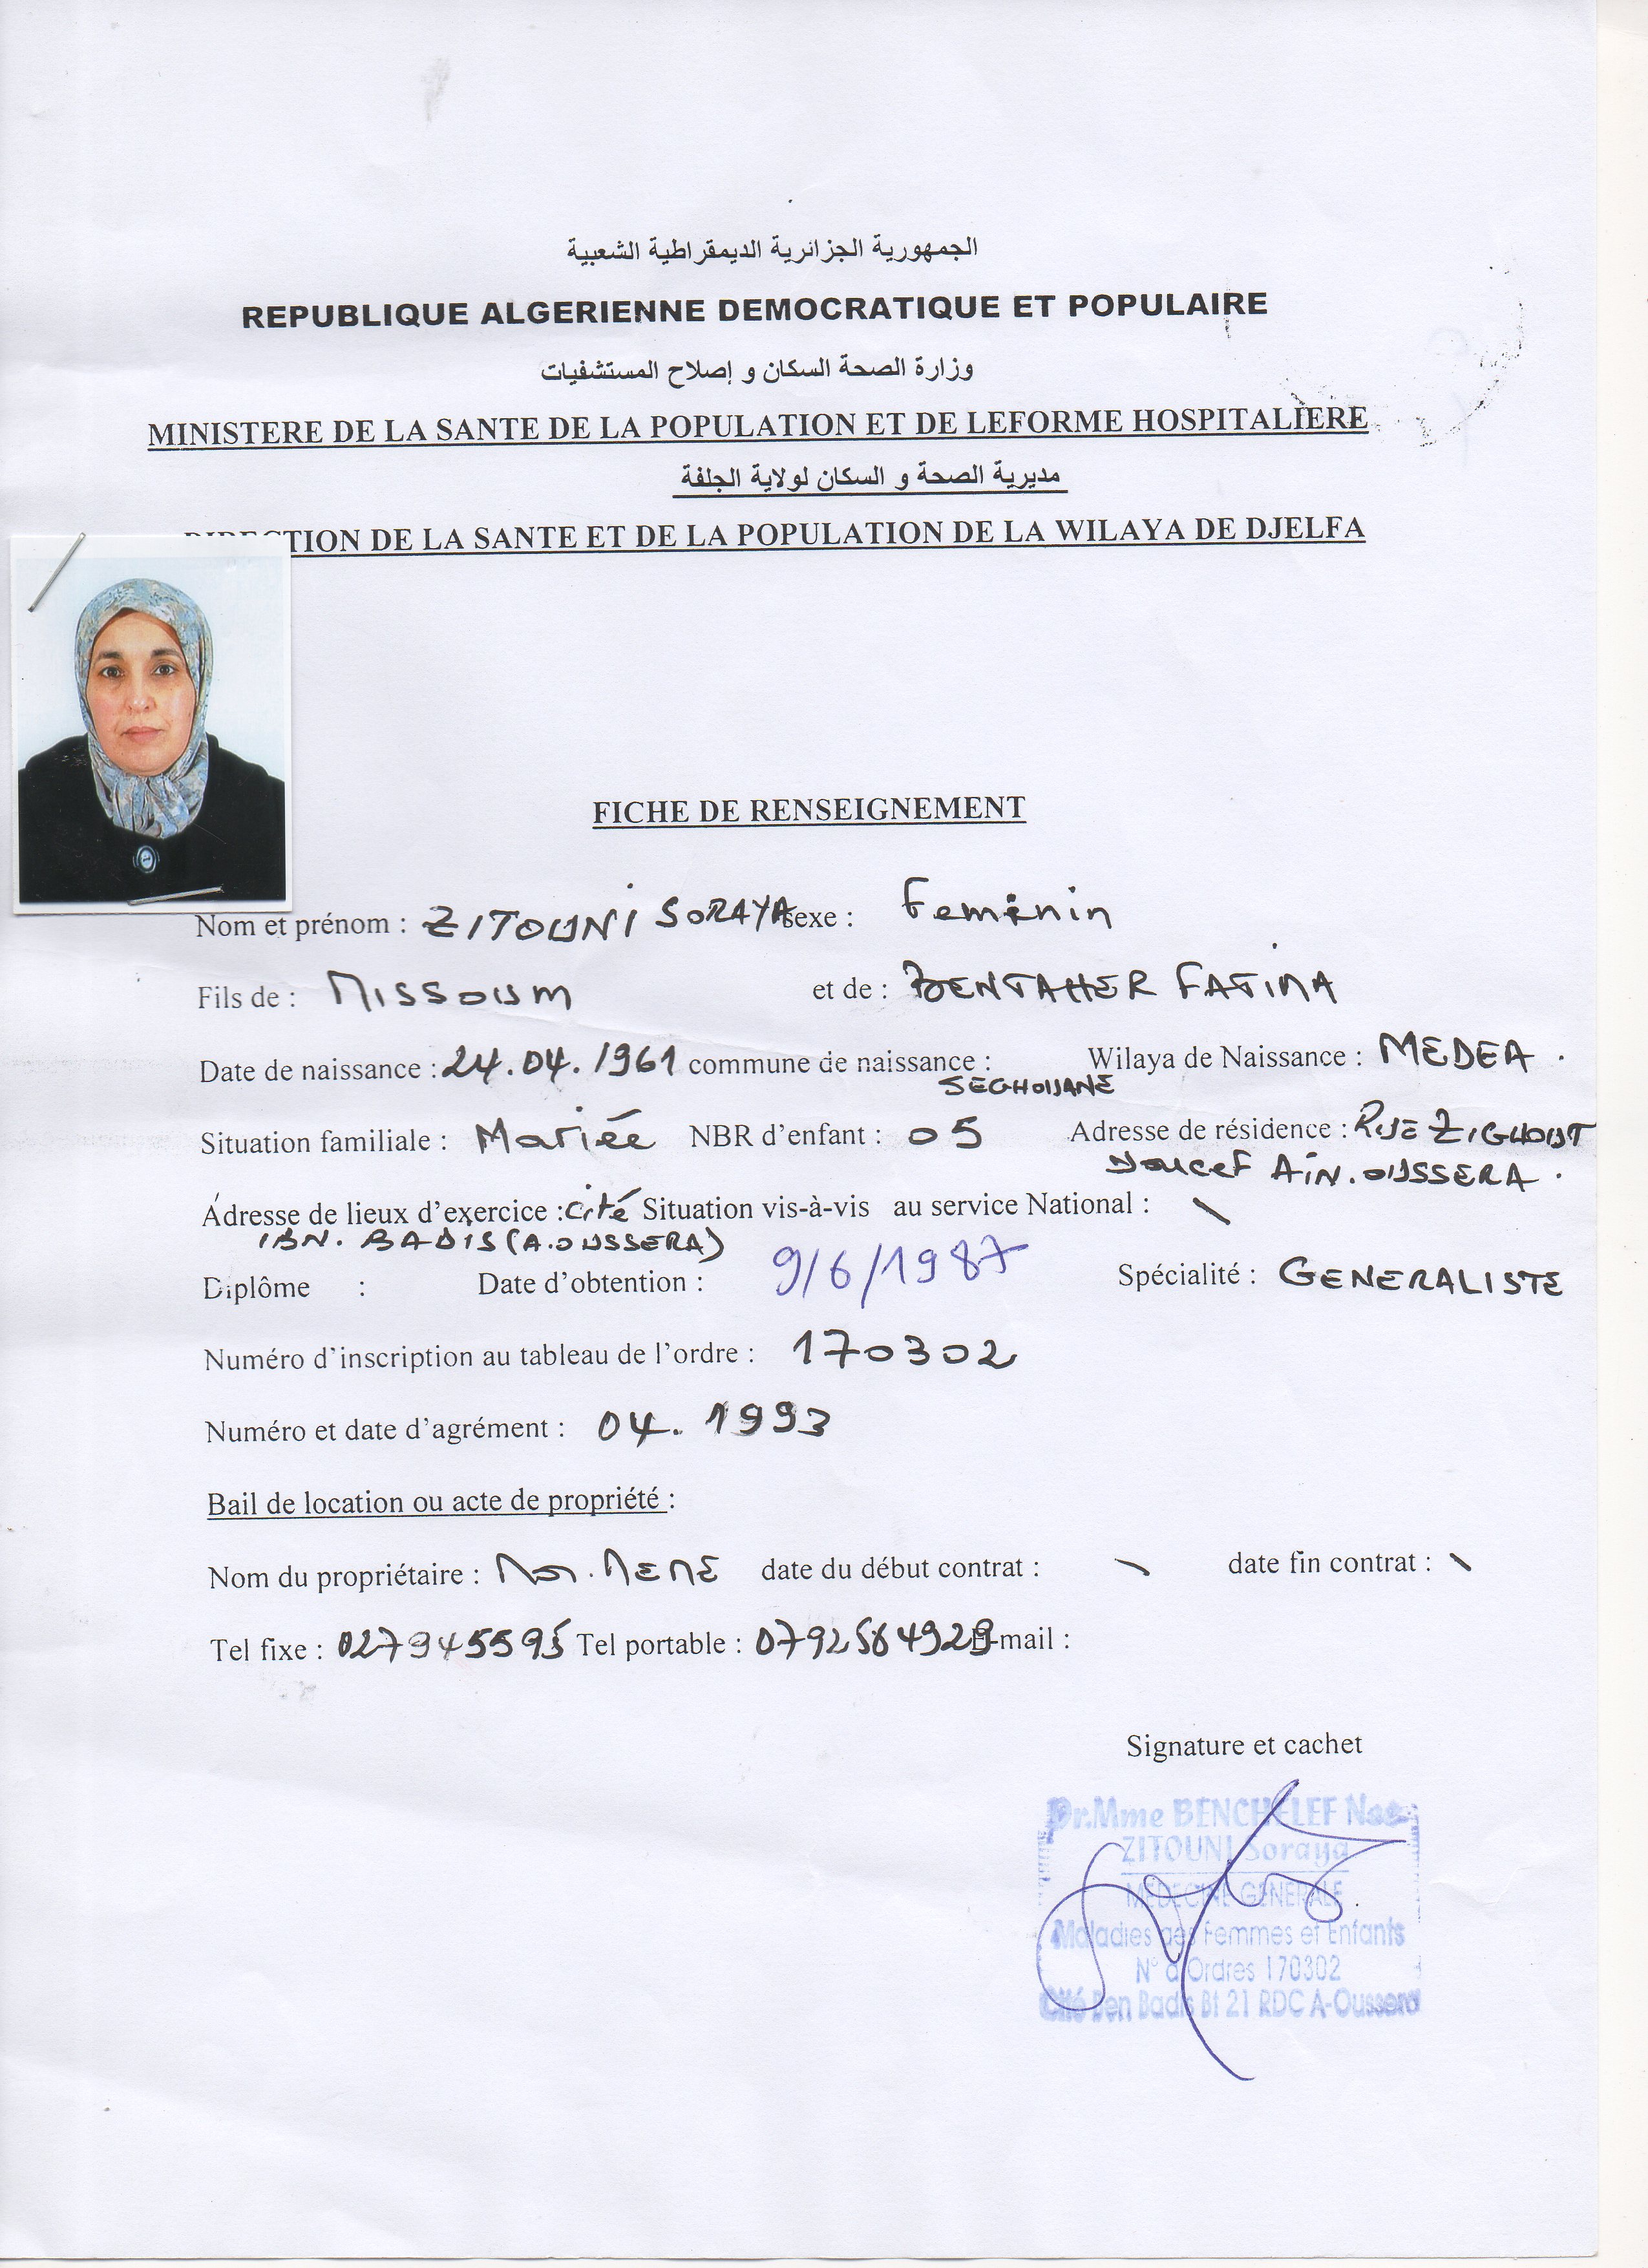 الجمهورية الجزائرية الديمقراطية الشعبية
REPUBLIQUE ALGERIENNE DEMOCRATIQUE ET POPULAIRE
وزارة الصحة السكان و إصلاح المستشفيات
MINISTERE DE LA SANTE DE LA POPULATION ET DE LEFORME HOSPITALIERE
مديرية الصحة و السكان لولاية الجلفة
DIRECTION DE LA SANTE ET DE LA POPULATION DE LA WILAYA DE DJELFA
FICHE DE RENSEIGNEMENT
Nom et prénom : ZITOUNI SORAYA sexe : Feminin
Fils de : MISSOUM et de : BENTAHER FATIMA
Date de naissance : 24.04.1961 commune de naissance : Wilaya de Naissance : MEDEA .
SEGHOUANE
Situation familiale : Mariée NBR d'enfant : 05 Adresse de résidence : RUE ZIGHOUT
Youcef AIN.OUSSERA .
Adresse de lieux d'exercice : cité Situation vis-à-vis au service National : \
IBN. BADIS (A.OUSSERA)
Diplôme : Date d'obtention : 9/6/1987 Spécialité : GENERALISTE
Numéro d'inscription au tableau de l'ordre : 170302
Numéro et date d'agrément : 04. 1993
Bail de location ou acte de propriété :
Nom du propriétaire : Moi.MEME date du début contrat : \ date fin contrat : \
Tel fixe : 027945595 Tel portable : 0792564929 E-mail :
Signature et cachet
Dr.Mme BENCHELEF Nee
ZITOUNI Soraya
MEDECINE GENERALE
Maladies des Femmes et Enfants
N° d'Ordres 170302
Cité Ben Badis Bt 21 RDC A-Oussera